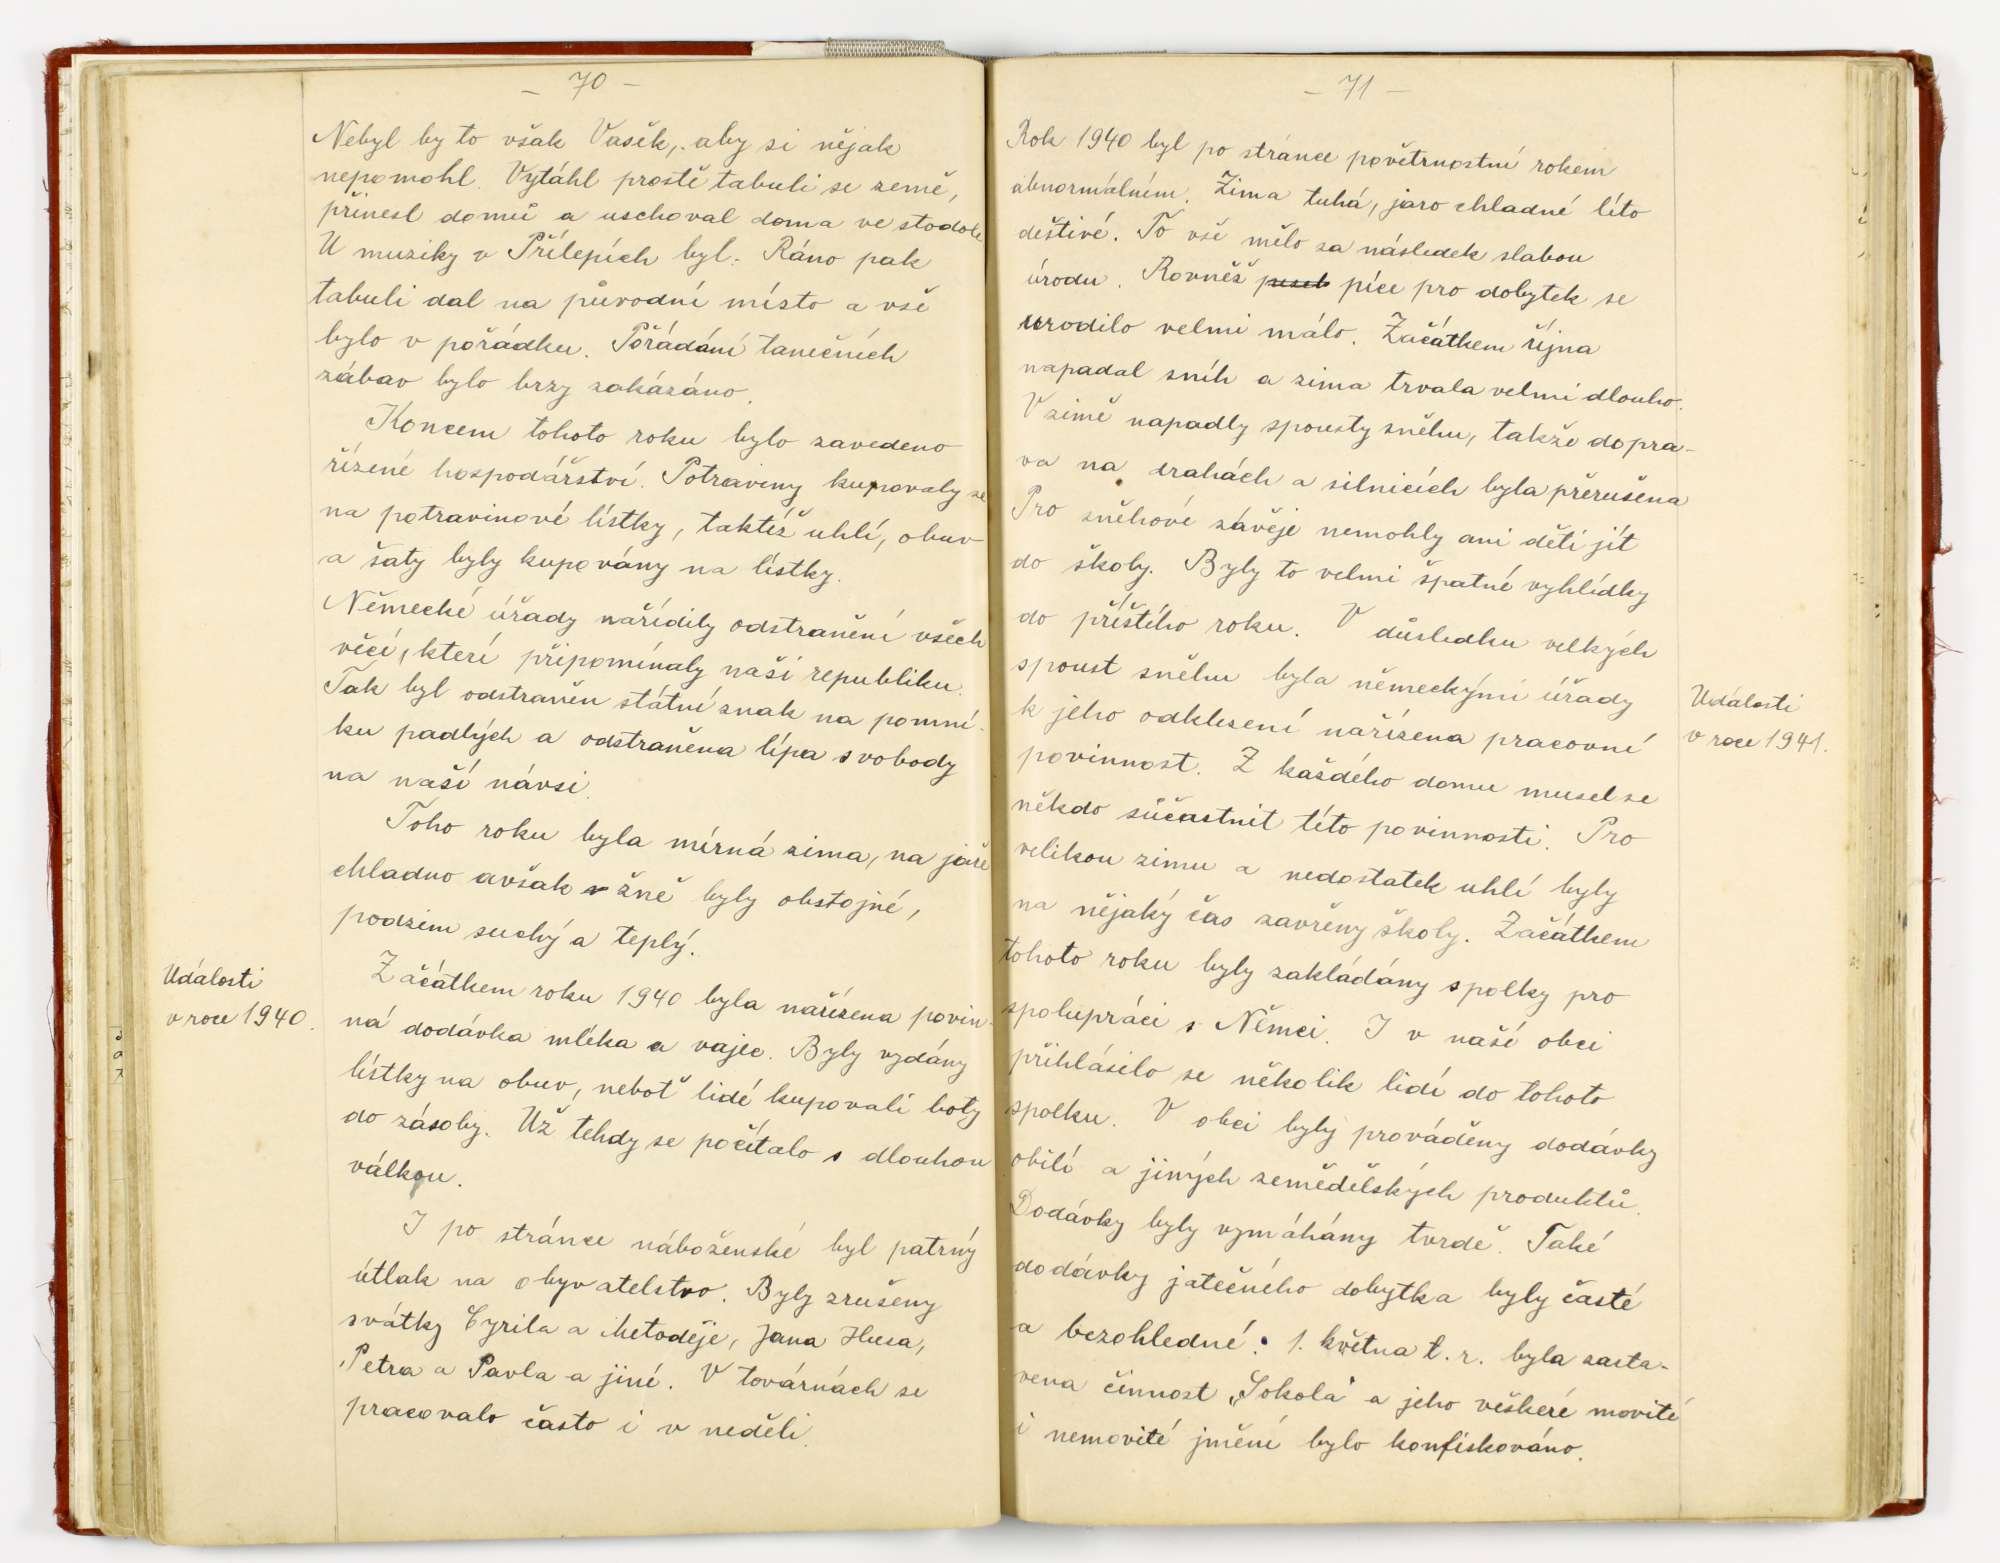 - 70 -
Nebyl by to však Vašék, aby si nějak
nepomohl. Vytáhl prostě tabuli se země,
přinesl domů a uschoval doma ve stodole
U muziky v Přílepích byl. Ráno pak
tabuli dal na původní místo a vše
bylo v pořádku. Pořádání tanečních
zábav bylo brzy zakázáno.
Koncem tohoto roku bylo zavedeno
řízené hospodářství. Potraviny kupovaly se
na potravinové lístky, taktéž uhlí, obuv
a šaty byly kupovány na lístky.
Německé úřady nařídily odstranění všech
věcí, které připomínaly naši republiku.
Tak byl odstraněn státní znak na pomní-
ku padlých a odstraněna lípa svobody
na naší návsi.
Toho roku byla mírná zima, na jaře
chladno avšak žně byly obstojné,
podzim suchý a teplý.
Události
v roce 1940.
Začátkem roku 1940 byla nařízena povin-
ná dodávka mléka a vajec. Byly vydány
lístky na obuv, neboť lidé kupovali boty
do zásoby. Už tehdy se počítalo s dlouhou
válkou.
I po stránce náboženské byl patrný
útlak na obyvatelstvo. Byly zrušeny
svátky Cyrila a Metoděje, Jana Husa,
Petra a Pavla a jiné. V továrnách se
pracovalo často i v neděli.
- 71 -
Rok 1940 byl po stránce povětrnostní rokem
abnormálním. Zima tuhá, jaro chladné léto
deštivé. To vše mělo za následek slabou
úrodu. Rovněž píce pro dobytek se
urodilo velmi málo. Začátkem října
napadal sníh a zima trvala velmi dlouho.
V zimě napadly spousty sněhu, takže dopra-
va na drahách a silnicích byla přerušena
Pro sněhové závěje nemohly ani děti jít
do školy. Byly to velmi špatné vyhlídky
do příštího roku. V důsledku velkých
spoust sněhu byla německými úřady
k jeho odklizení nařízena pracovní
povinnost. Z každého domu musel se
někdo súčastnit této povinnosti. Pro
velikou zimu a nedostatek uhlí byly
na nějaký čas zavřeny školy. Začátkem
tohoto roku byly zakládány spolky pro
spolupráci s Němci. I v naší obci
přihlásilo se několik lidí do tohoto
spolku. V obci byly prováděny dodávky
obilí a jiných zemědělských produktů.
Dodávky byly vymáhány tvrdě. Také
dodávky jatečného dobytka byly časté
a bezohledné. 1. května t. r. byla zasta-
vena činnost „Sokola" a jeho veškeré movité
i nemovité jmění bylo konfiskováno.
Události
v roce 1941.